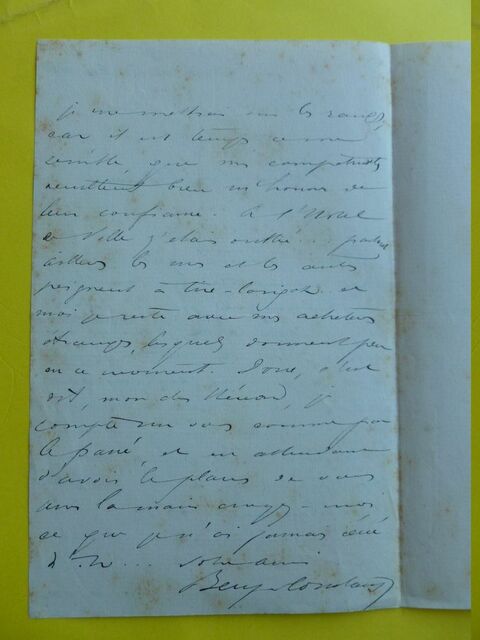 je me mettrai sur les rangs,
car il est temps ce me
semble que mes compatriotes
veuillent bien m'honorer de
leur confiance. À l'Hôtel
de Ville j'étais oublié... partout
ailleurs les uns et les autres
peignent à tire-larigot et
moi je reste avec mes acheteurs
étrangers, lesquels donnent peu
en ce moment. Donc, c'est
dit, mon cher, je
compte sur vous comme par
le passé, et en attendant
d'avoir le plaisir de vous
serrer la main croyez-moi
ce que je n'ai jamais cessé
d'être... votre ami
Benj. Constant